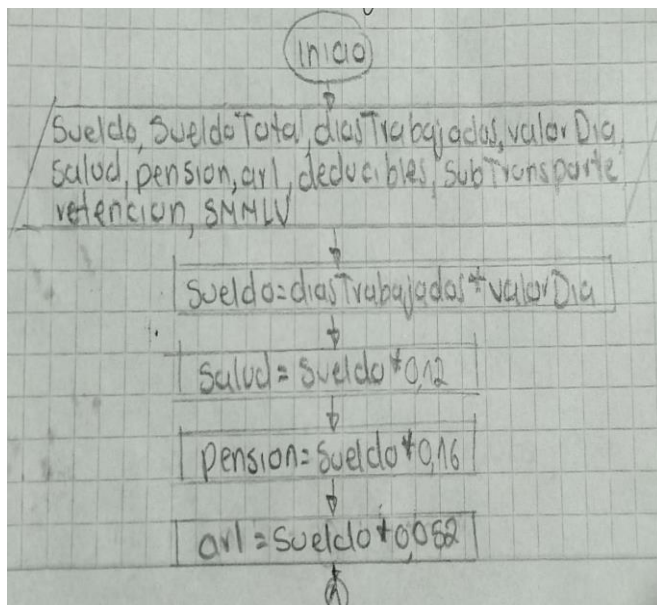 Inicio
Sueldo, SueldoTotal, diasTrabajados, valorDia,
salud, pension, arl, deducibles, subTransporte
retencion, SMMLV
Sueldo=diasTrabajados*valorDia
Salud=Sueldo*0,12
pension=Sueldo*0,16
arl=Sueldo*0,052
A